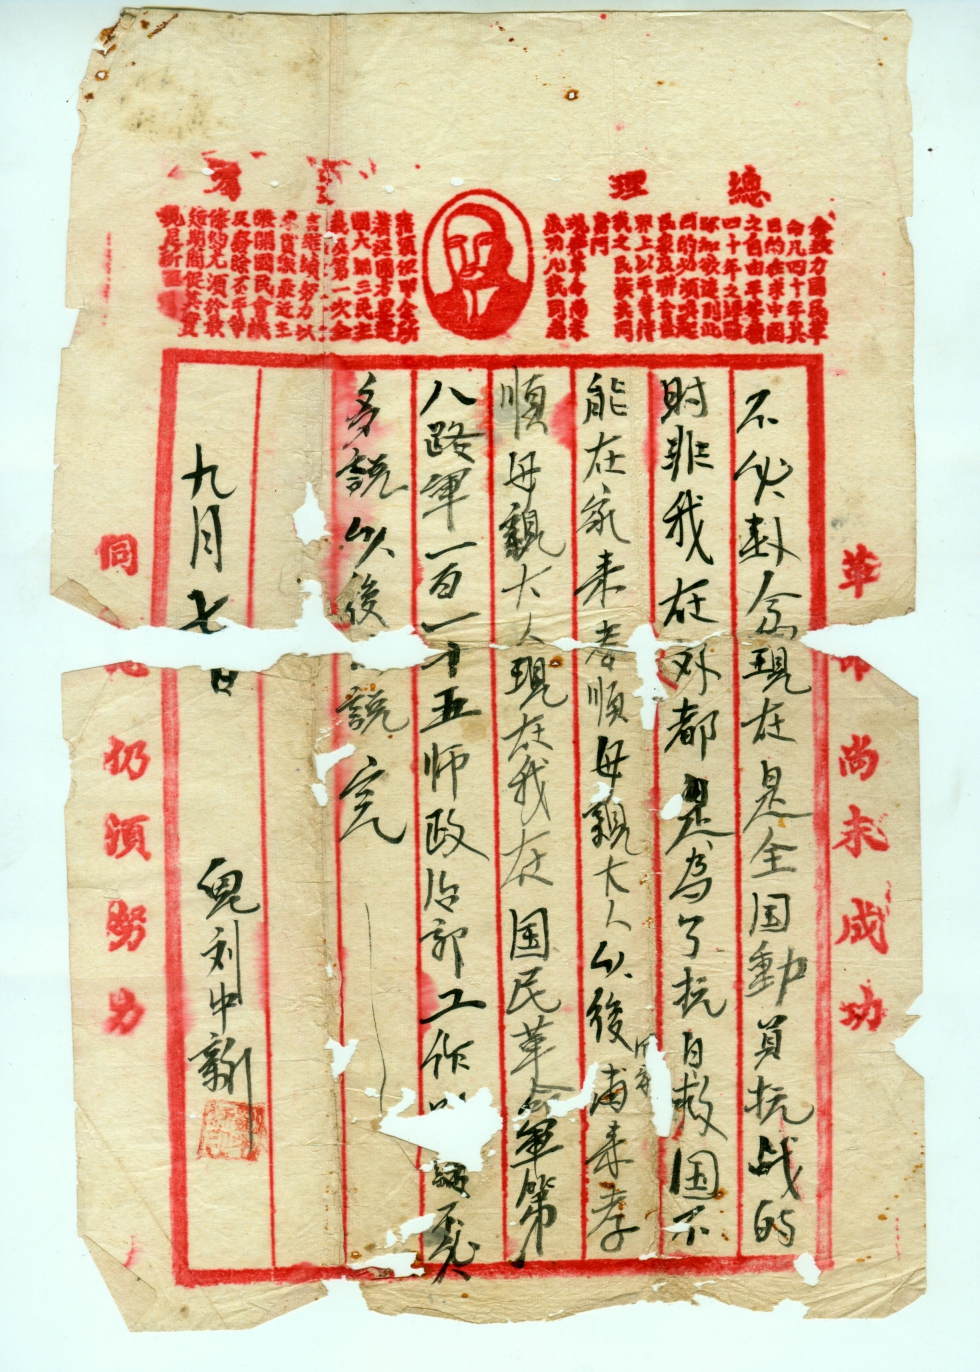 總理
余致力國民革
命凡四十年其
目的在求中國
之自由平等積
四十年之經驗
深知欲達到此
目的必須喚起
民衆及聯合世
界上以平等待
我之民族共同
奮鬥
現在革命尚未
成功凡我同志
務須依照余所
著建國方畧建
國大綱三民主
義及第一次全
言繼續努力以
求貫徹最近主
張開國民會議
及廢除不平等
條約尤須於最
短期間促其實
現是所至
革 尚未成功
不必掛念現在是全国動員抗战的
时非我在外都是為了抗日救国不
能在家来孝順母親大人以後再来孝
回家
順母親大人現在我在国民革命軍第
八路軍一百一十五师政治部工作
多説以後 説完
九月七日
兒刘中新
同 仍須努力